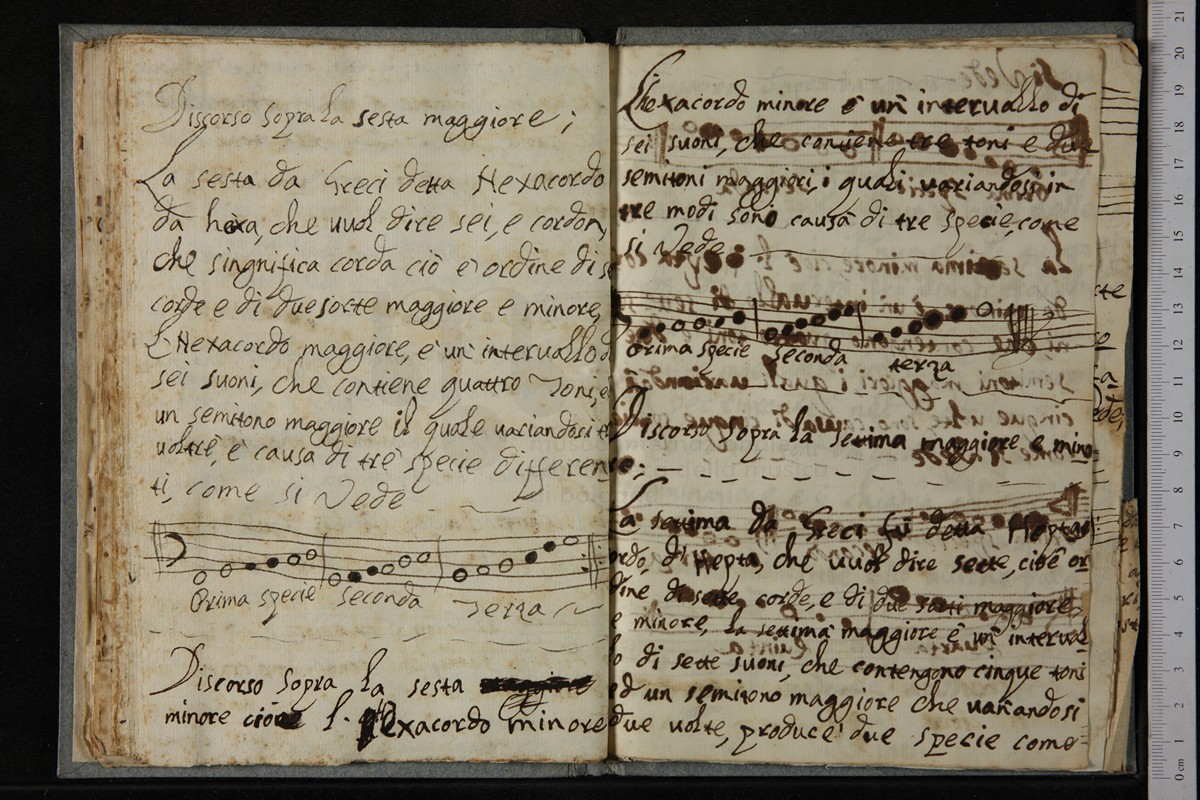 Discorso sopra la sesta maggiore;
La sesta da Greci detta Hexacordo
da hexa, che vuol dire sei, e cordon,
che singnifica corda ciò è ordine di s
corde e di due sorte maggiore e minore,
L'Hexacordo maggiore, è un intervallo d
sei suoni, che contiene quattro Toni, e
un semitono maggiore il quale variandosi t
voltre, è causa di tre specie differen
ti, come si Vede
Prima specie Seconda Terza
Discorso sopra la sesta
minore cioè l. Hexacordo minore
L'hexacordo minore è un intervallo di
sei suoni, che contiene tre toni e due
semitoni maggiori, i quali variandosi in
tre modi sono causa di tre specie, come
si Vede
prima specie seconda terza
Discorso sopra la settima maggiore e mino-
re;
La settima da Greci fu detta Heptac
ordo, di Hepta, che vuol dire sette, cioè or
dine di sette corde, e di due sorti maggiore
e minore, la settima maggiore è un interval
lo di sette suoni, che contengono cinque toni
ed un semitono maggiore che variandosi
due volte, produce due specie come